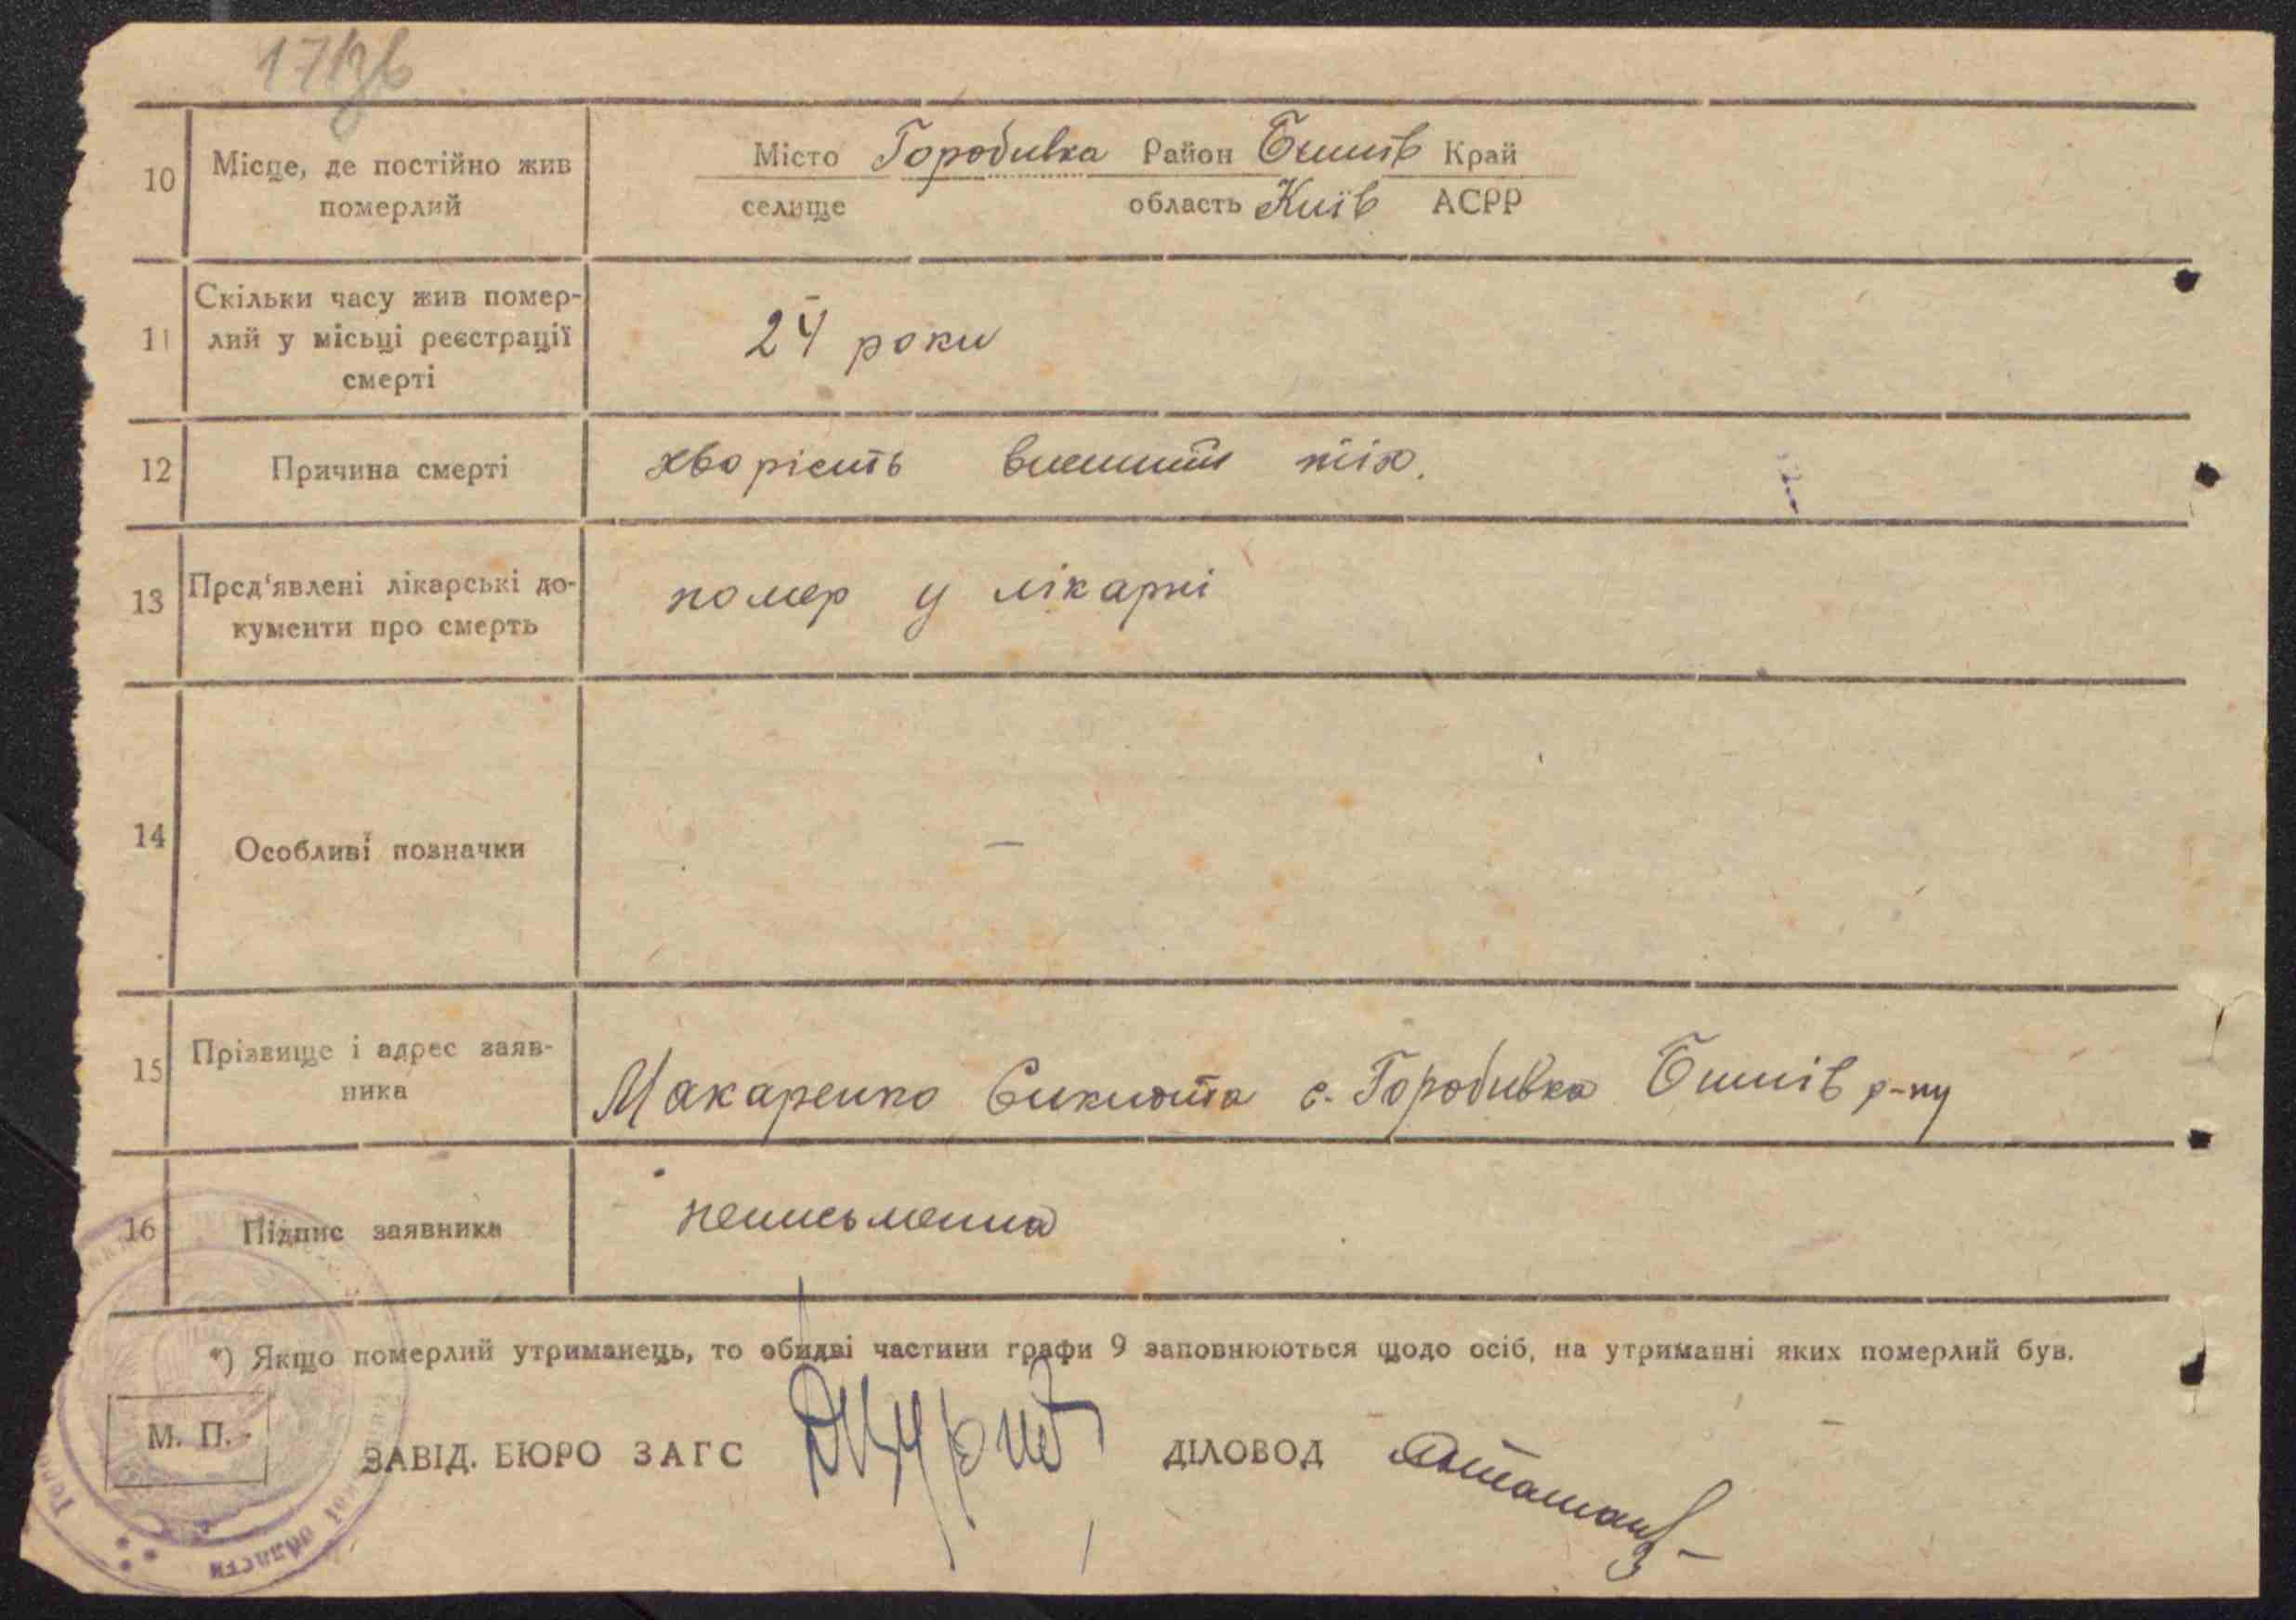 10 Місце, де постійно жив померлий
Місто Горобивка Район Бишів Край
селище область Київ АСРР
11 Скільки часу жив помер-
лий у місьці реєстрації
смерті
24 роки
12 Причина смерті
хворість
13 Пред'явлені лікарські до-
кументи про смерть
помер у лікарні
14 Особливі позначки
—
15 Прізвище і адрес заяв-
ника
Макаренко с. Горобивка Бишів р-ну
16 Підпис заявника
неписьменна
*) Якщо померлий утриманець, то обидві частини графи 9 заповнюються щодо осіб, на утриманні яких померлий був.
М. П.
ЗАВІД. БЮРО ЗАГС
ДІЛОВОД
области